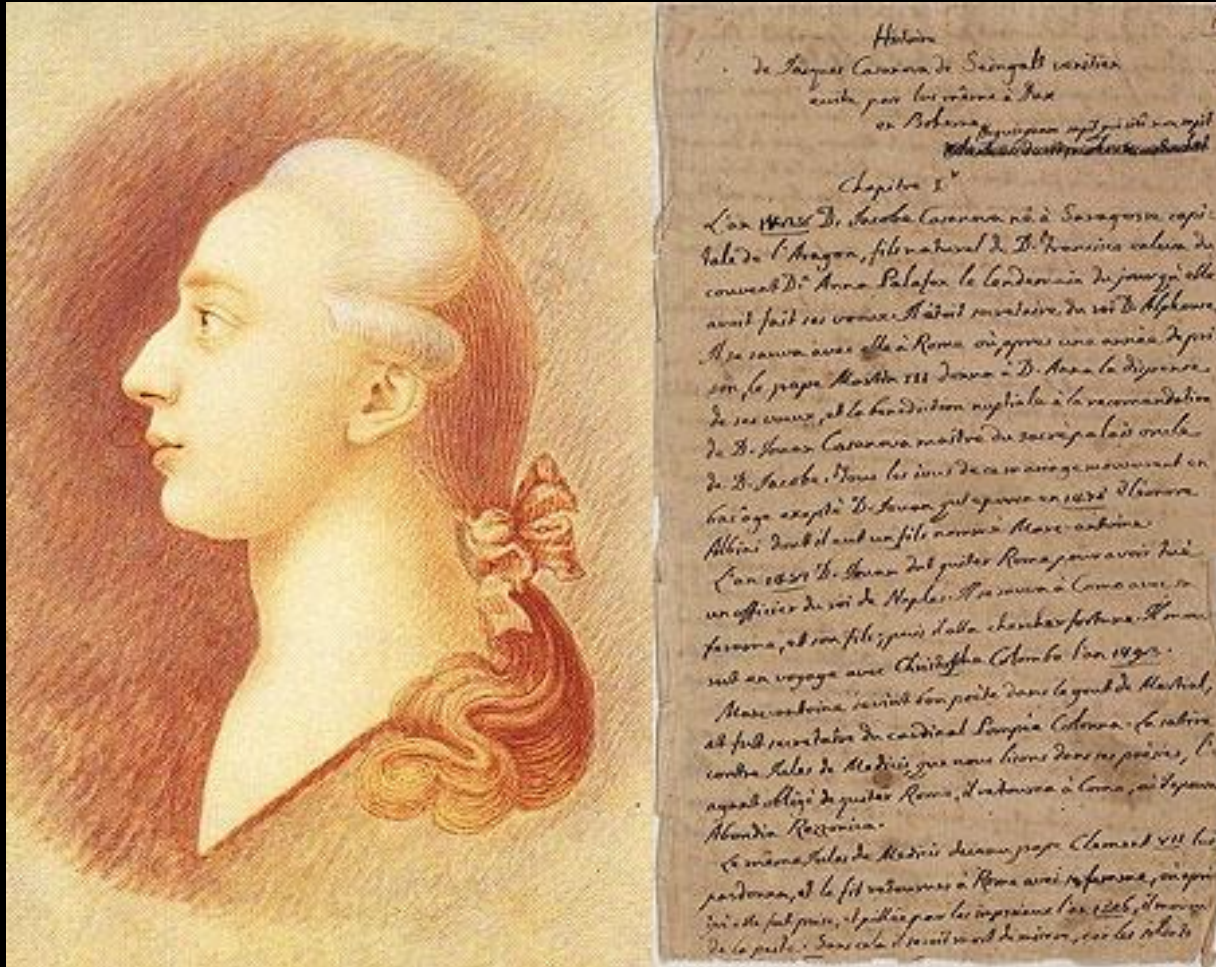 Histoire
de Jacques Casanova de Seingalt venitien
ecrite par lui même à Dux
en Boheme
Nequicquam sapit qui sibi non sapit
Chapitre I.r
L'an 1428 D. Jacobe Casanova né à Saragosse capi-
tale de l'Aragon, fils naturel de D. Francisco enleva du
couvent D.a Anna Palafox le lendemain du jour qu'elle
avoit fait ses voeux. Il étoit secretaire du roi D. Alphonse.
Il se sauva avec elle à Rome où, apres une année de pri-
son, le pape Martin III donna à D. Anna la dispense
de ses voeux, et la benediction nuptiale à la recomandation
de D. Jouan Casanova maître du sacré palais oncle
de D. Jacobe. Tous les issus de ce mariage moururent en
bas age excepté D. Jouan qui epousa en 1475 Eleonore
Albini dont il eut un fils nommé Marc-antoine.
L'an 1481 D. Jouan dut quiter Rome pour avoir tué
un officier du roi de Naples. Il se sauva à Como avec sa
femme, et son fils; puis il alla chercher fortune. Il mou-
rut en voyage avec Christophe Colombo l'an 1493.
Marc-antoine devint bon poète dans le gout de Martial,
et fut secretaire du cardinal Pompée Colonna. La satire
contre Jules de Medicis, que nous lisons dans ses poesies, l'
ayant obligé de quiter Rome, il retourna à Como, où il epousa
Abondia Rezzonica.
Le même Jules de Medicis devenu pape Clement VII lui
pardonna, et le fit retourner à Rome avec sa femme, où apres
qu'elle fut prise, et pillée par les imperiaux l'an 1526, il mourut
de la peste. Sans cela il seroit mort de misere, car les soldats